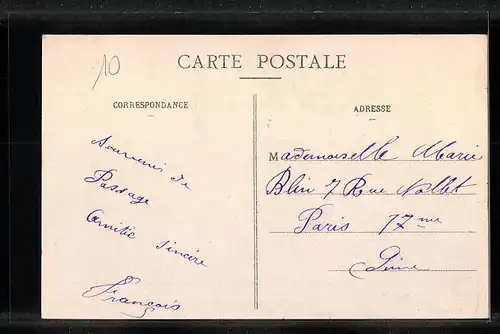 10
CARTE POSTALE
CORRESPONDANCE
Souvenir de
Passage
Amitié sincère
François
ADRESSE
Mademoiselle Marie
Blin 7 Rue Nollet
Paris 17me
Seine